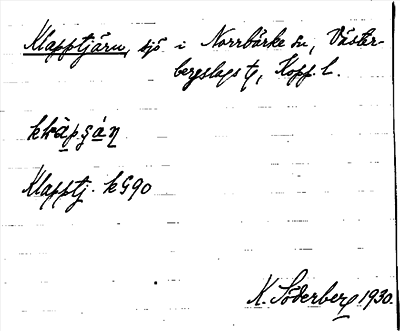 Klapptjärn, sjö i Norrbärke sn, Väster-
bergslags tg, Kopp. l.
Klapptj. kG90
K. Söderberg 1930.